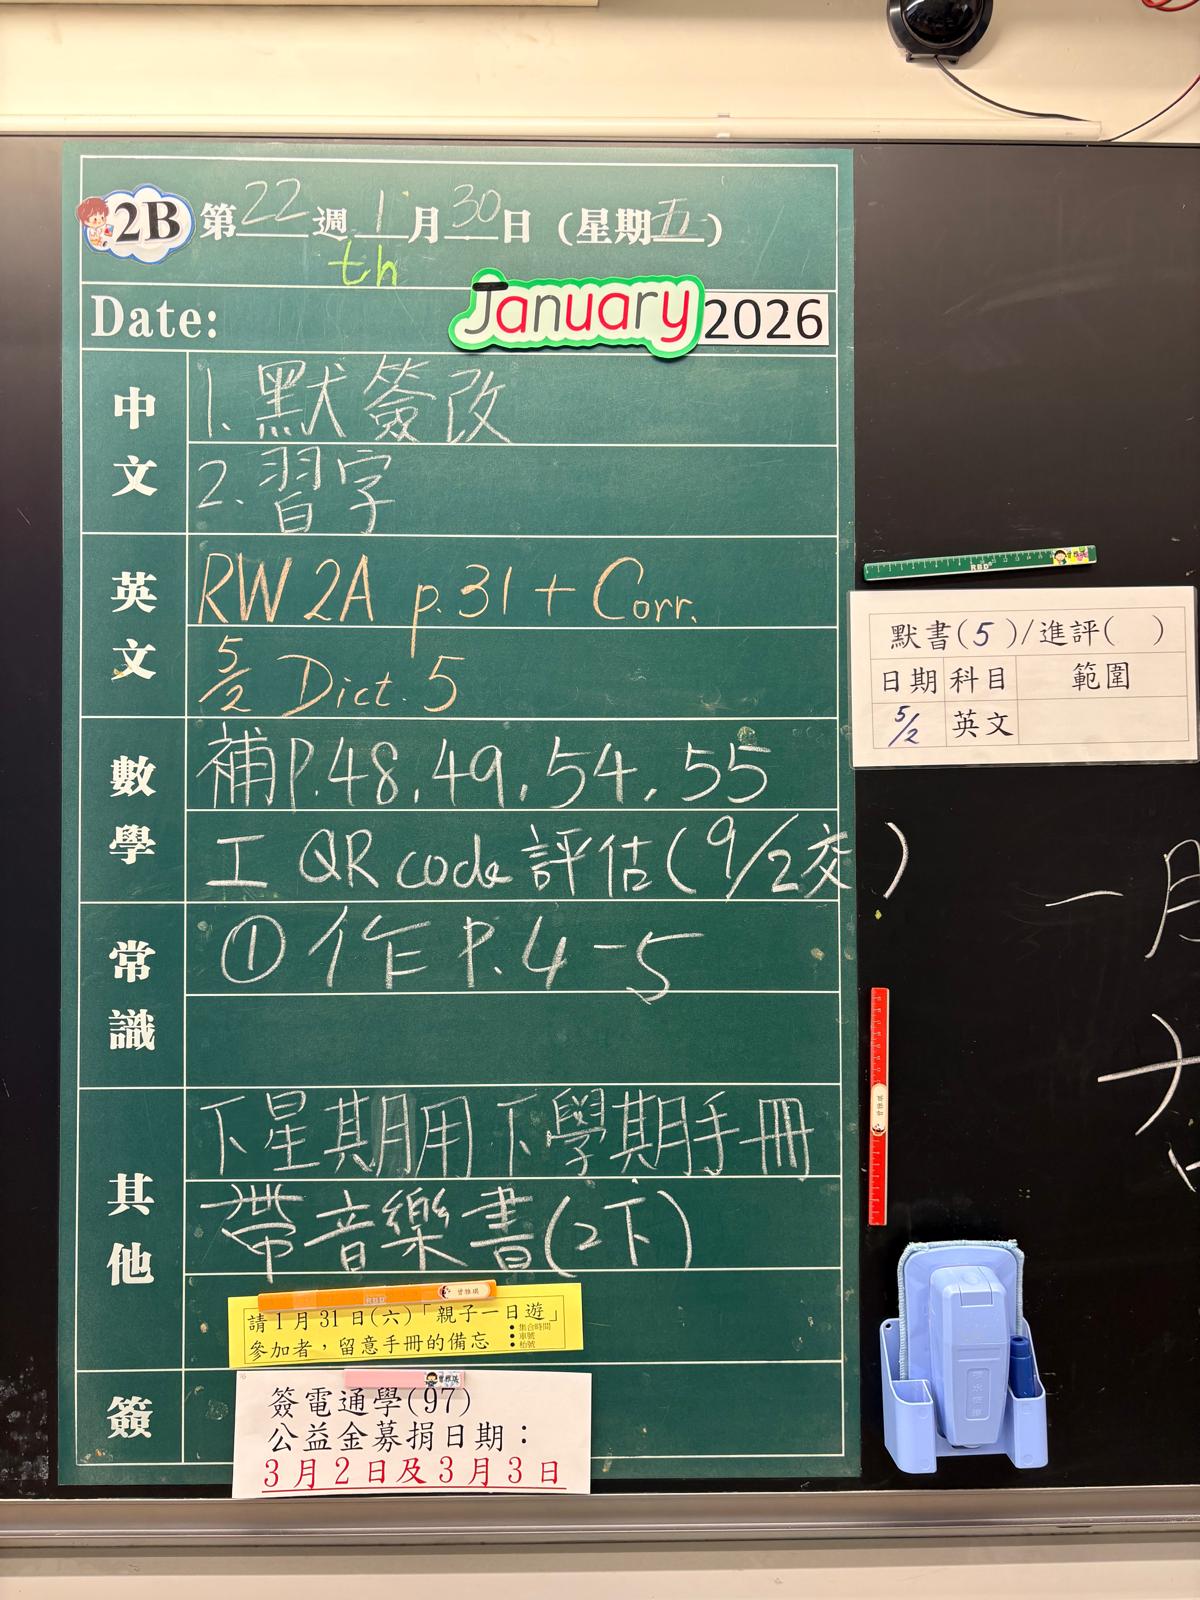 2B 第22週1月30日(星期五)
th
Date: January 2026
中文
1. 默簽改
2. 習字
英文
RW 2A p.31 + Corr.
5/2 Dict. 5
數學
補P.48, 49, 54, 55
工 QR code 評估(9/2交)
常識
① 作 P.4-5
其他
下星期用下學期手冊
帶音樂書(2下)
請1月31日(六)「親子一日遊」
參加者，留意手冊的備忘
•集合時間
•車號
•枱號
簽
簽電通學(97)
公益金募捐日期：
3月2日及3月3日
RBD
曾雅琪
默書(5)/進評( )
日期 科目 範圍
5/2 英文
一月